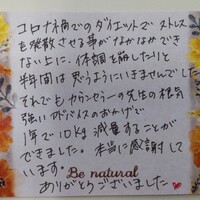 コロナ禍でのダイエットで ストレス
も発散させる事がなかなかできない上に、体調を崩したりと
半年間は思うようにいきませんでした
それでもカウンセラーの先生の根気
強いアドバイスのおかげで
1年で10kg減量することが
できました。本当に感謝して
います。
Be natural
ありがとうございました